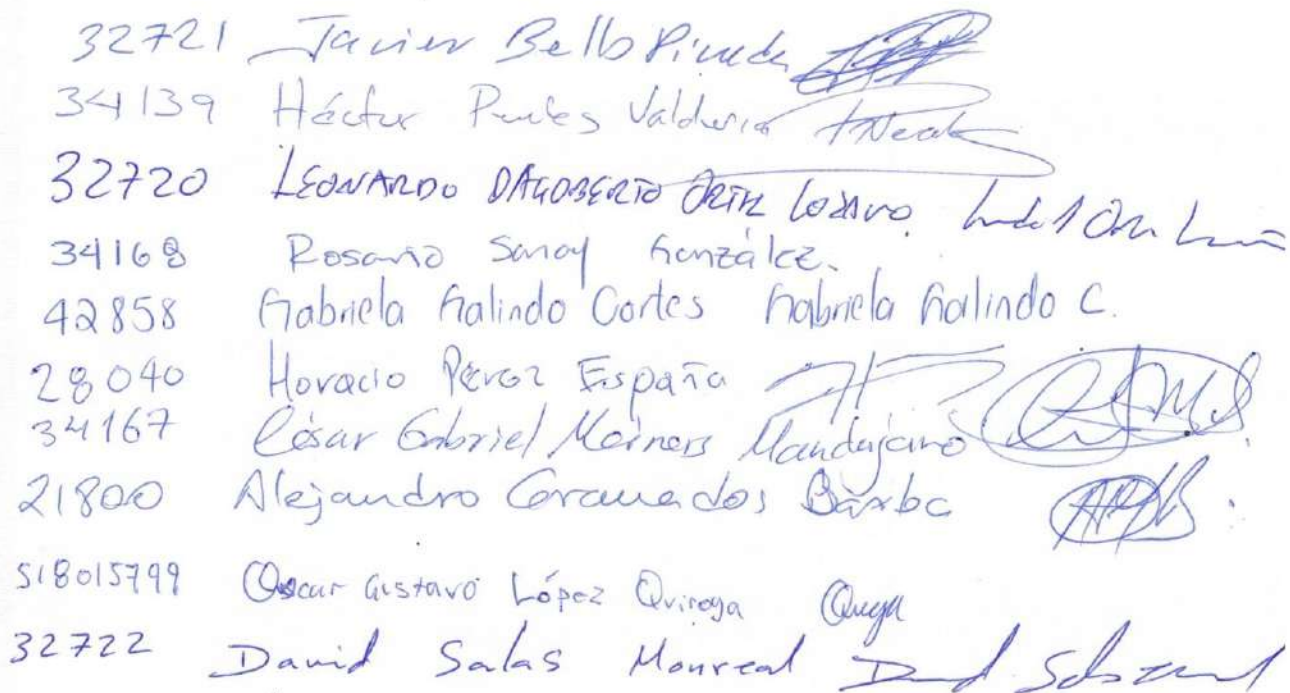 32721 Javier Bello Pineda
34139 Héctor Perales Valdivia
32720 LEONARDO DAGOBERTO ORTIZ LOZANO
34168 Rosario Sanay González.
42858 Gabriela Galindo Cortes Gabriela Galindo C.
28040 Horacio Pérez España
34167 César Gabriel Meiners Mandujano
21800 Alejandro Granados Barba
S18015799 Oscar Gustavo López Quiroga
32722 David Salas Monreal